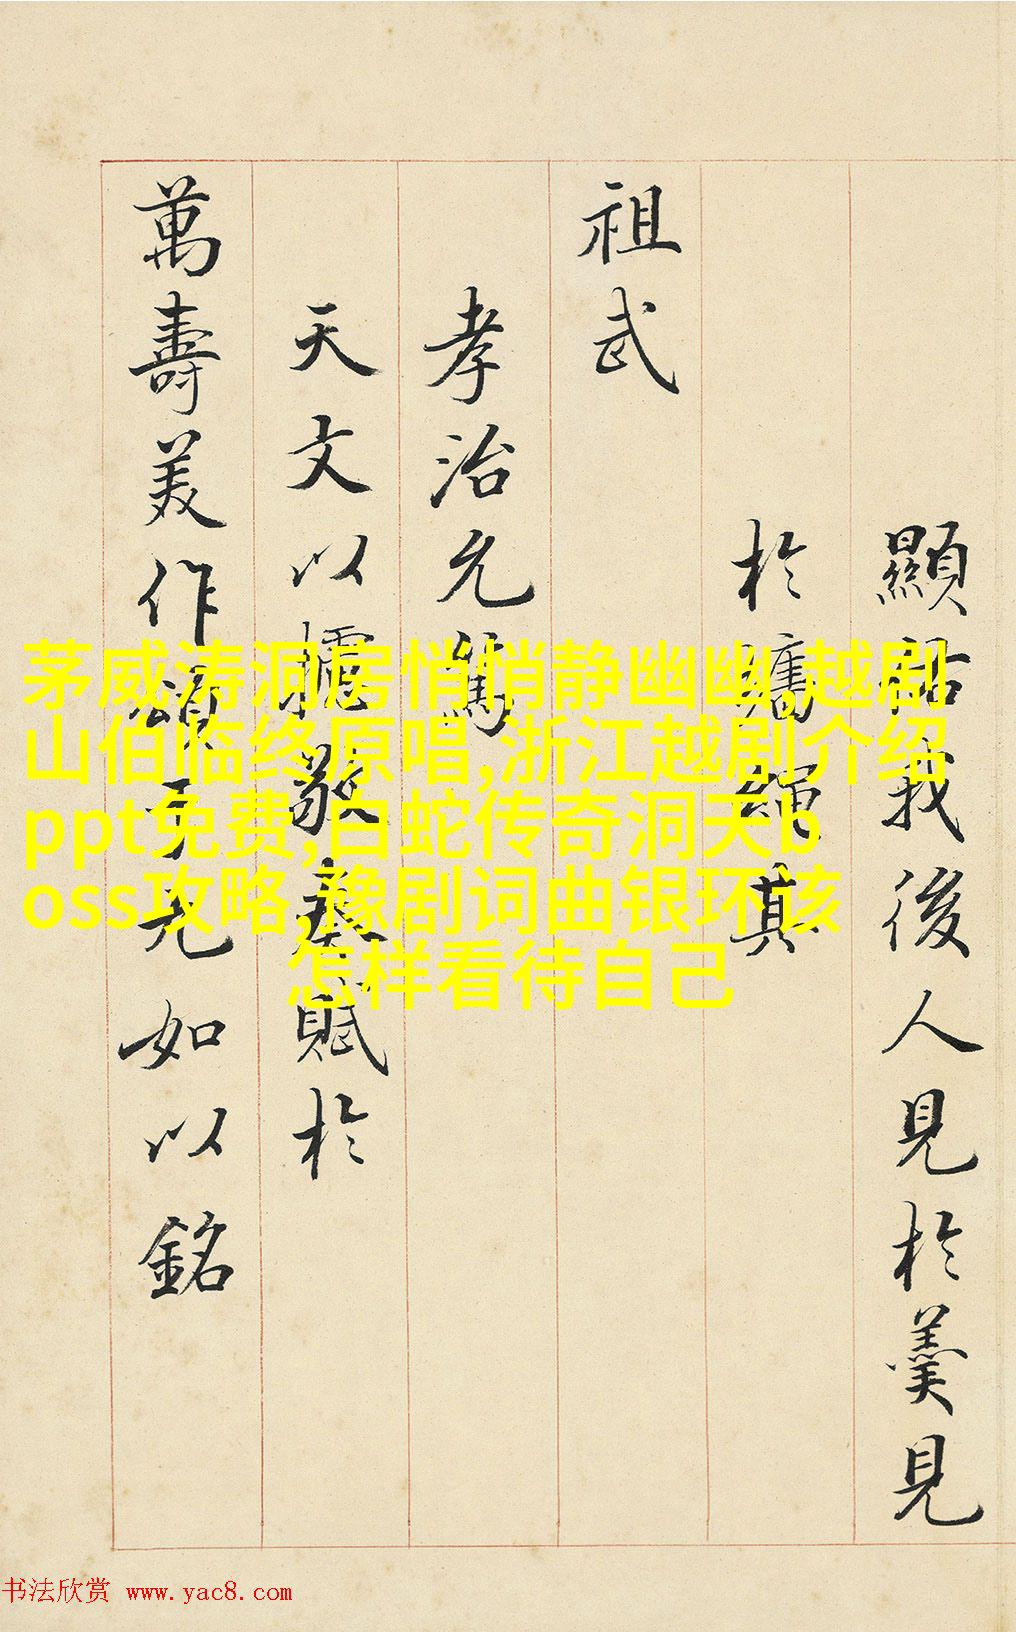 顯詒我後人見於羹見
於墻繩其
祖武
孝治允篤
天文以攄敬奉賦於
萬壽美作頌予尤如以銘
茅威涛洞房悄悄静幽幽,越剧
山伯临终原唱,浙江越剧介绍
ppt免费,白蛇传奇洞天b
oss攻略,豫剧词曲银环该
怎样看待自己
书法欣赏 www.yac8.com